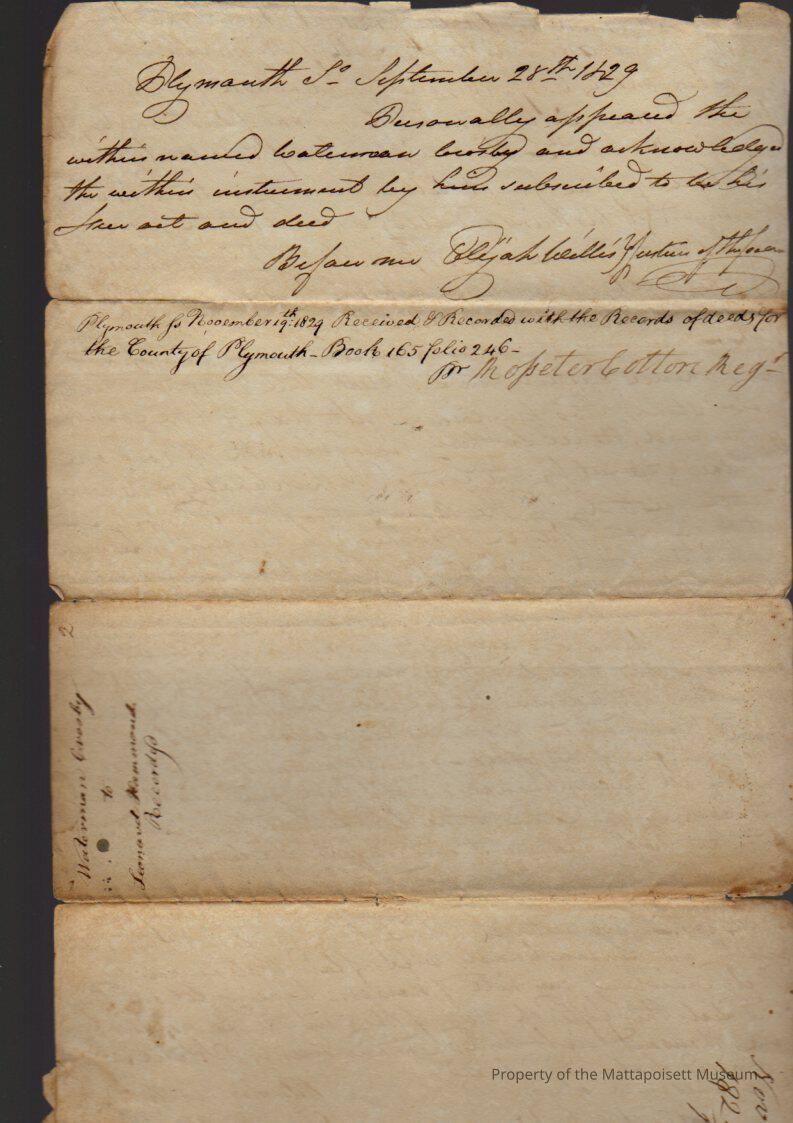 Plymouth Ss September 28th 1829
Personally appeared the
within named Waterman Crosby and acknowledged
the within instrument by him subscribed to be his
free act and deed
Before me Elijah Willis Justice of the peace
Plymouth ss November 19th 1829 Received & Recorded with the Records of deeds for
the County of Plymouth - Book 165 folio 246 -
pr Rosseter Cotton Regr
2
Waterman Crosby
to
Leonard Hammond
Recordg
Nov
182
Property of the Mattapoisett Museum